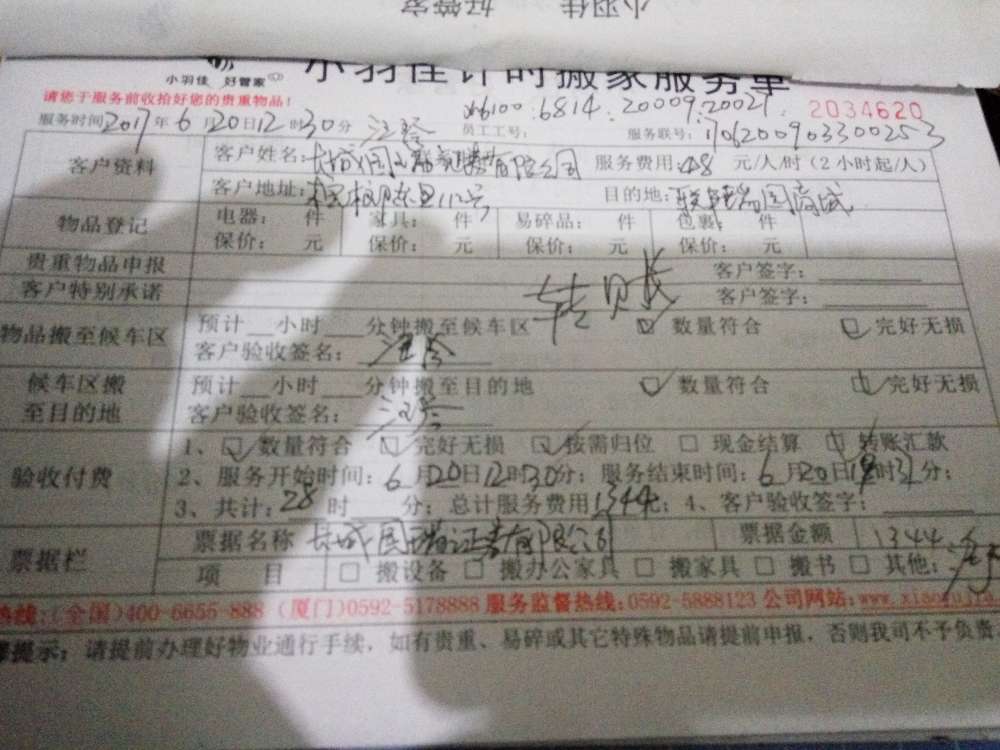 小羽佳 好管家
小羽佳计时搬家服务单
小羽佳 好管家
请您于服务前收拾好您的贵重物品！
6100.6814.20009.20021
2034620
服务时间2017年6月20日12时30分 汪琴 员工工号： 服务联号：
客户资料
客户姓名：长城国瑞证券有限公司 服务费用：48 元/人/时（2小时起/人）
客户地址： 目的地：
物品登记
电器： 件 家具： 件 易碎品： 件 包裹： 件
保价： 元 保价： 元 保价： 元 保价： 元
贵重物品申报 客户签字：
客户特别承诺 转账 客户签字：
物品搬至候车区
预计 小时 分钟搬至候车区 ☑ 数量符合 ☑ 完好无损
客户验收签名：汪琴
候车区搬至目的地
预计 小时 分钟搬至目的地 ☑ 数量符合 ☑ 完好无损
客户验收签名：汪琴
验收付费
1、☑ 数量符合 ☑ 完好无损 ☑ 按需归位 □ 现金结算 ☑ 转账汇款
2、服务开始时间：6月20日12时30分；服务结束时间：6月20日 时 分；
3、共计：28 时 分；总计服务费用1344元；4、客户验收签字：
票据栏
票据名称 长城国瑞证券有限公司 票据金额 1344
项 目 □ 搬设备 □ 搬办公家具 □ 搬家具 □ 搬书 □ 其他：
热线：（全国）400-6655-888 （厦门）0592-5178888 服务监督热线：0592-5888123 公司网站：www.xiaoyujia
提示：请提前办理好物业通行手续，如有贵重、易碎或其它特殊物品请提前申报，否则我司不予负责